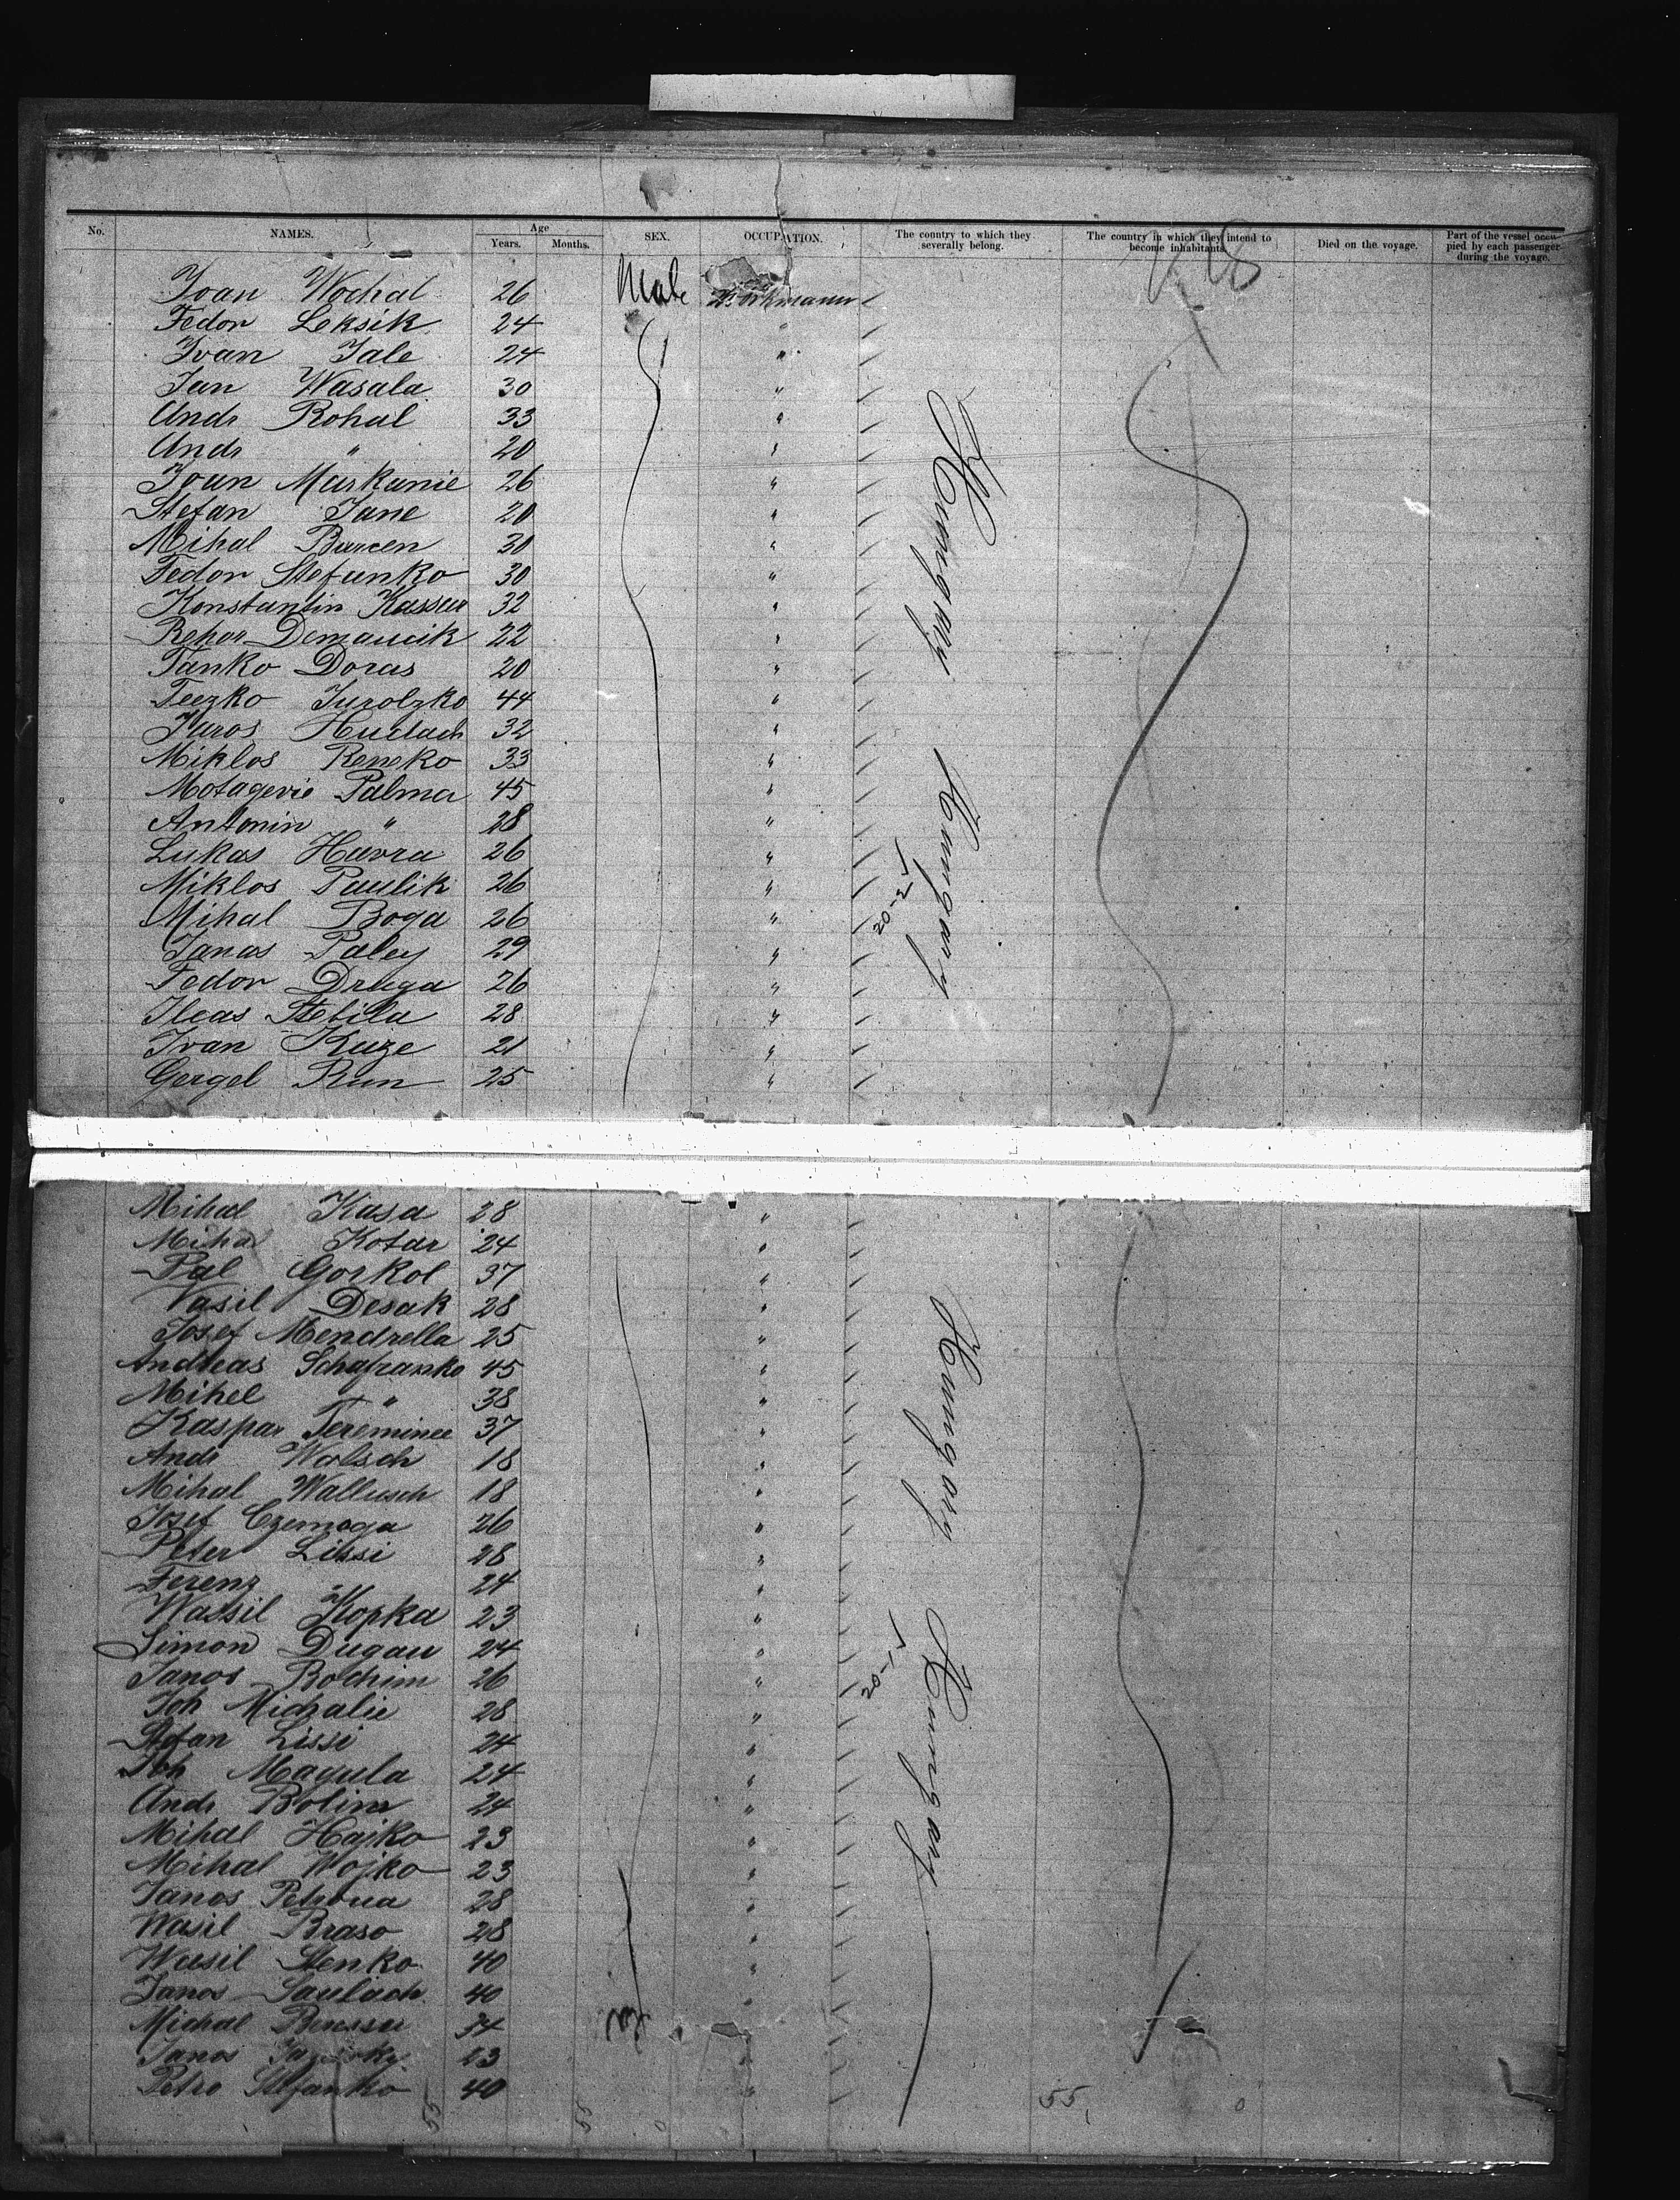 No. NAMES. Age Years. Months. SEX. OCCUPATION. The country to which they severally belong. The country in which they intend to become inhabitants. Died on the voyage. Part of the vessel occupied by each passenger during the voyage.
Ivan Wochal 26 Male Workmann
Fedor Leksik 24 "
Ivan Jale 24 "
Jan Wasala 30 "
Andr Rohal 33 "
Andr " 20 "
Ivan Markanie 26 "
Stefan Jane 20 "
Mihal Burcen 30 "
Fedor Stefanko 30 "
Konstantin Kassur 32 "
Rehor Demaucik 22 "
Tanko Dorus 20 "
Feczko Jurolzko 44 "
Juros Hudach 32 "
Miklos Reneko 33 "
Motagevie Palma 45 "
Antonin " 28 "
Lukas Havra 26 "
Miklos Paulik 26 "
Mihal Boga 26 "
Janos Paley 29 "
Fedor Druga 26 "
Ileas Stebila 28 "
Ivan Kuze 21 "
Gergel Run 25 "
Hungary
Hungary
20-2
US
Mihal Kasa 28 "
Mihal Kotar 24 "
Pal Gorkol 37 "
Vasil Desak 28 "
Josef Mendrella 25 "
Andreas Schafranko 45 "
Mihel " 38 "
Kaspar Jereminee 37 "
Andr Wolsch 18 "
Mihal Wallusch 18 "
Josef Czemoga 26 "
Peter Lissi 28 "
Ferenz " 24 "
Wassil Kopka 23 "
Simon Dugau 24 "
Janos Rochim 26 "
Joh Michalie 28 "
Stefan Lissi 24 "
Joh Magula 24 "
Andr Bolina 24 "
Mihal Hajko 23 "
Mihal Wojko 23 "
Janos Petrova 28 "
Wasil Braso 28 "
Wasil Stenko 40 "
Janos Saulach 40 "
Michal 34 "
Janos 23 "
Petro Stefanko 40 "
Hungary
Hungary
20-1
55 55 0 55 0